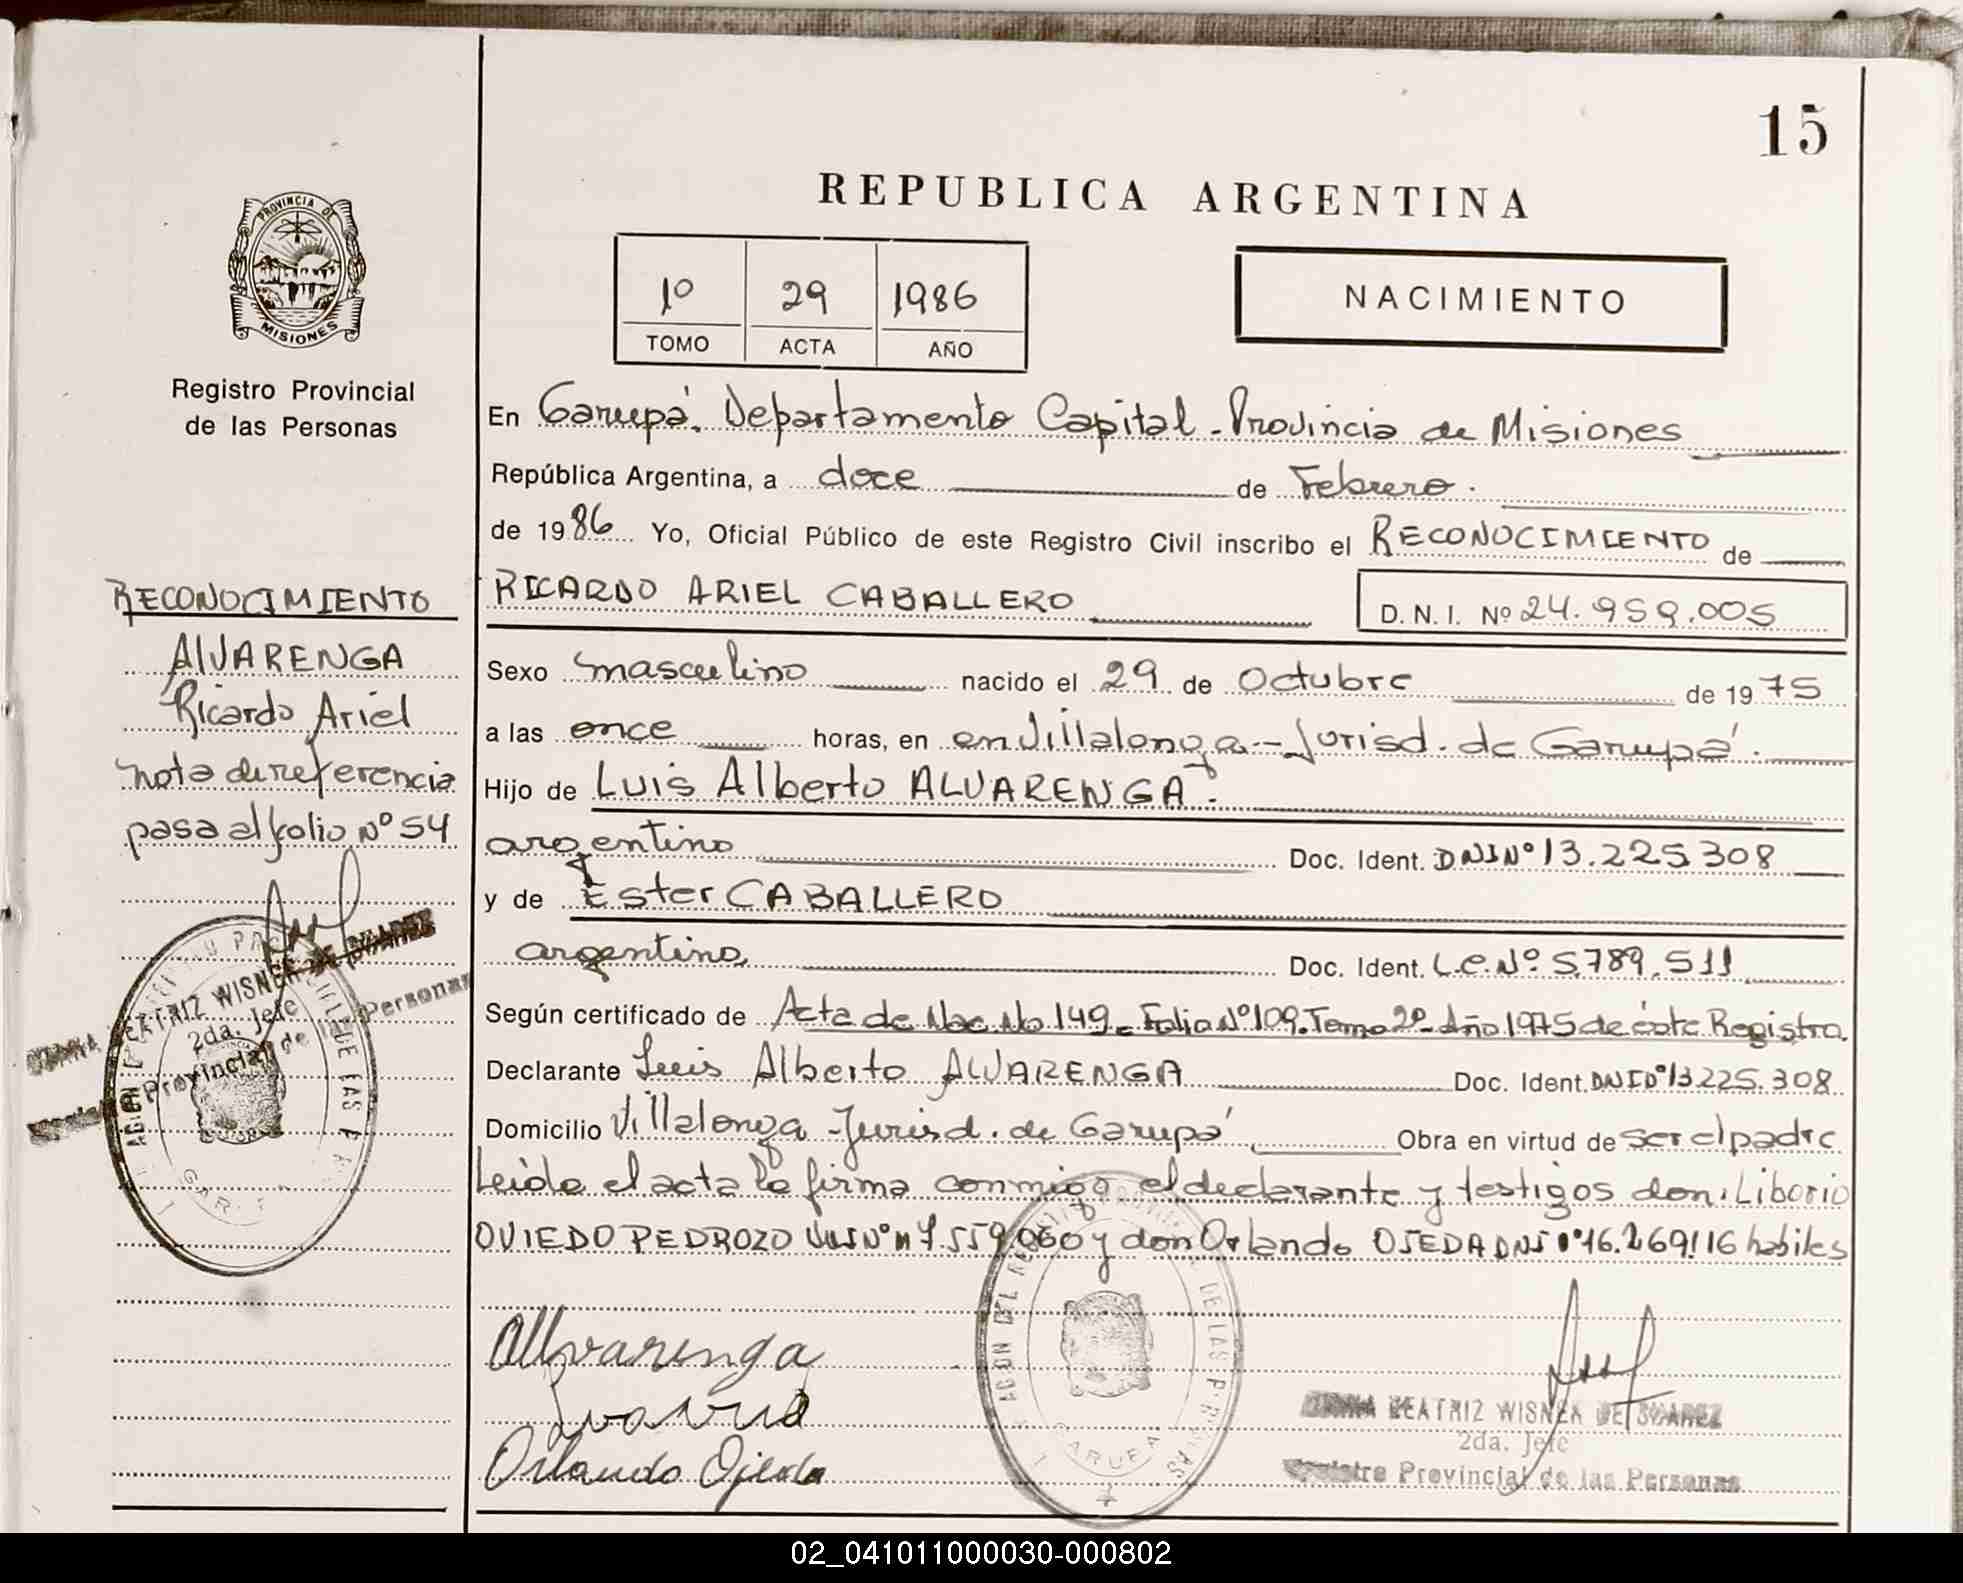 15
REPUBLICA ARGENTINA
PROVINCIA DE
MISIONES
Registro Provincial
de las Personas
1º 29 1986
TOMO ACTA AÑO
NACIMIENTO
En Garupá. Departamento Capital - Provincia de Misiones
República Argentina, a doce de Febrero.
de 1986 Yo, Oficial Público de este Registro Civil inscribo el RECONOCIMIENTO de
RICARDO ARIEL CABALLERO D. N. I. Nº 24.959.005
Sexo masculino nacido el 29 de Octubre de 1975
a las once horas, en en Villalonga - Jurisd. de Garupá.
Hijo de Luis Alberto ALVARENGA.
argentino Doc. Ident. DNI Nº 13.225308
y de Ester CABALLERO
argentina Doc. Ident. L.C. Nº 5.789.511
Según certificado de Acta de Nac. No 149 - Folio Nº 109. Tomo 2º - Año 1975 de éste Registro.
Declarante Luis Alberto ALVARENGA Doc. Ident. DNI Dº 13.225.308
Domicilio Villalonga - Jurisd. de Garupá Obra en virtud de ser el padre
Leida el acta la firma conmigo el declarante y testigos don: Liborio
OVIEDO PEDROZO 7.559.060 y don Orlando OJEDA DNI Nº 16.269116 habiles
Orlando Ojeda
BEATRIZ WISNER DE SUAREZ
2da. Jefe
Registro Provincial de las Personas
RECONOCIMIENTO
ALVARENGA
Ricardo Ariel
nota de referencia
pasa al folio Nº 54
BEATRIZ WISNER DE SUAREZ
2da. Jefe
Provincial de las Personas
02_041011000030-000802